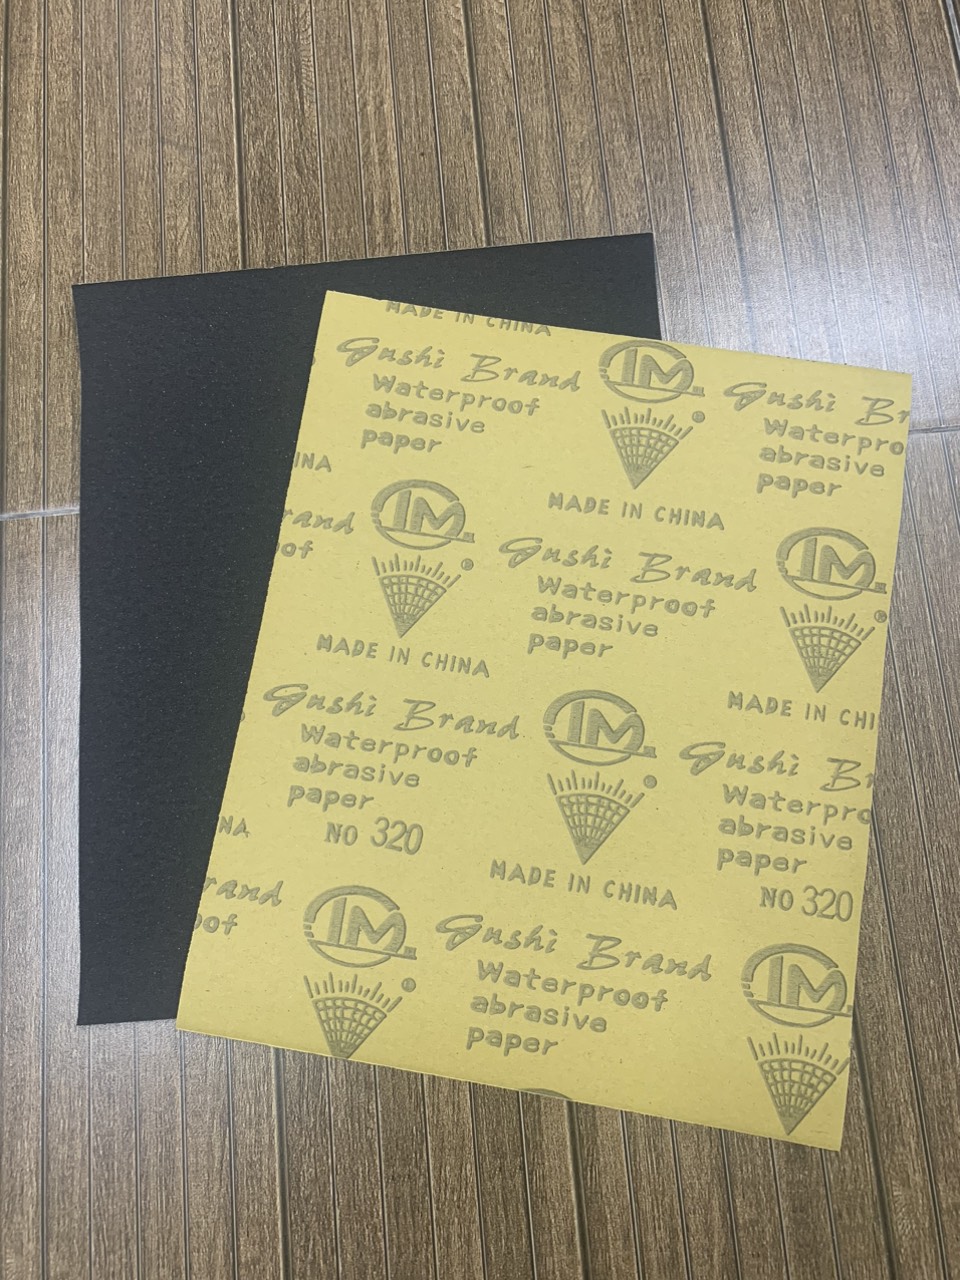 MADE IN CHINA
Gushi Brand
Waterproof
abrasive
paper
IM
®
Gushi Br
Waterpro
abrasive
paper
INA
MADE IN CHINA
rand
of
IM
®
Gushi Brand
Waterproof
abrasive
paper
IM
®
MADE IN CHINA
MADE IN CHI
Gushi Brand
Waterproof
abrasive
paper
NO 320
IM
®
Gushi Br
Waterpro
abrasive
paper
NO 320
NA
MADE IN CHINA
rand
oof
IM
®
Gushi Brand
Waterproof
abrasive
paper
IM